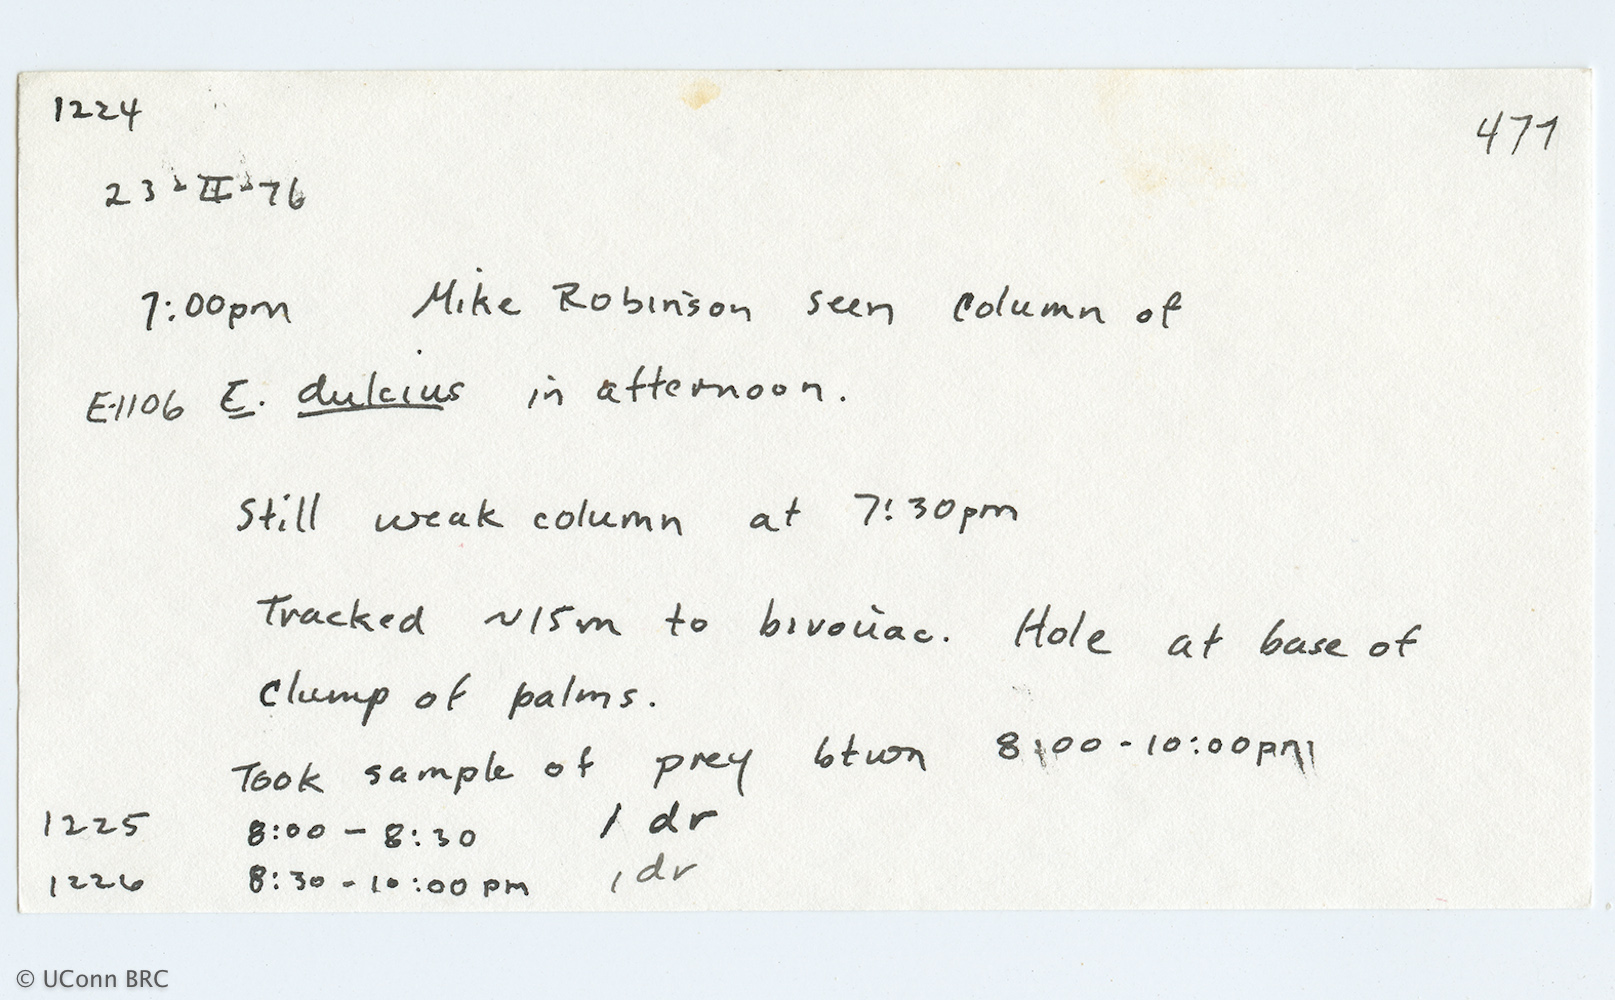 1224
477
23-II-76
7:00pm Mike Robinson seen column of
E-1106 E. dulcius in afternoon.
Still weak column at 7:30pm
Tracked ~15m to bivouac. Hole at base of
clump of palms.
Took sample of prey btwn 8:00-10:00pm
1225 8:00-8:30 1 dr
1226 8:30-10:00pm 1 dr
© UConn BRC